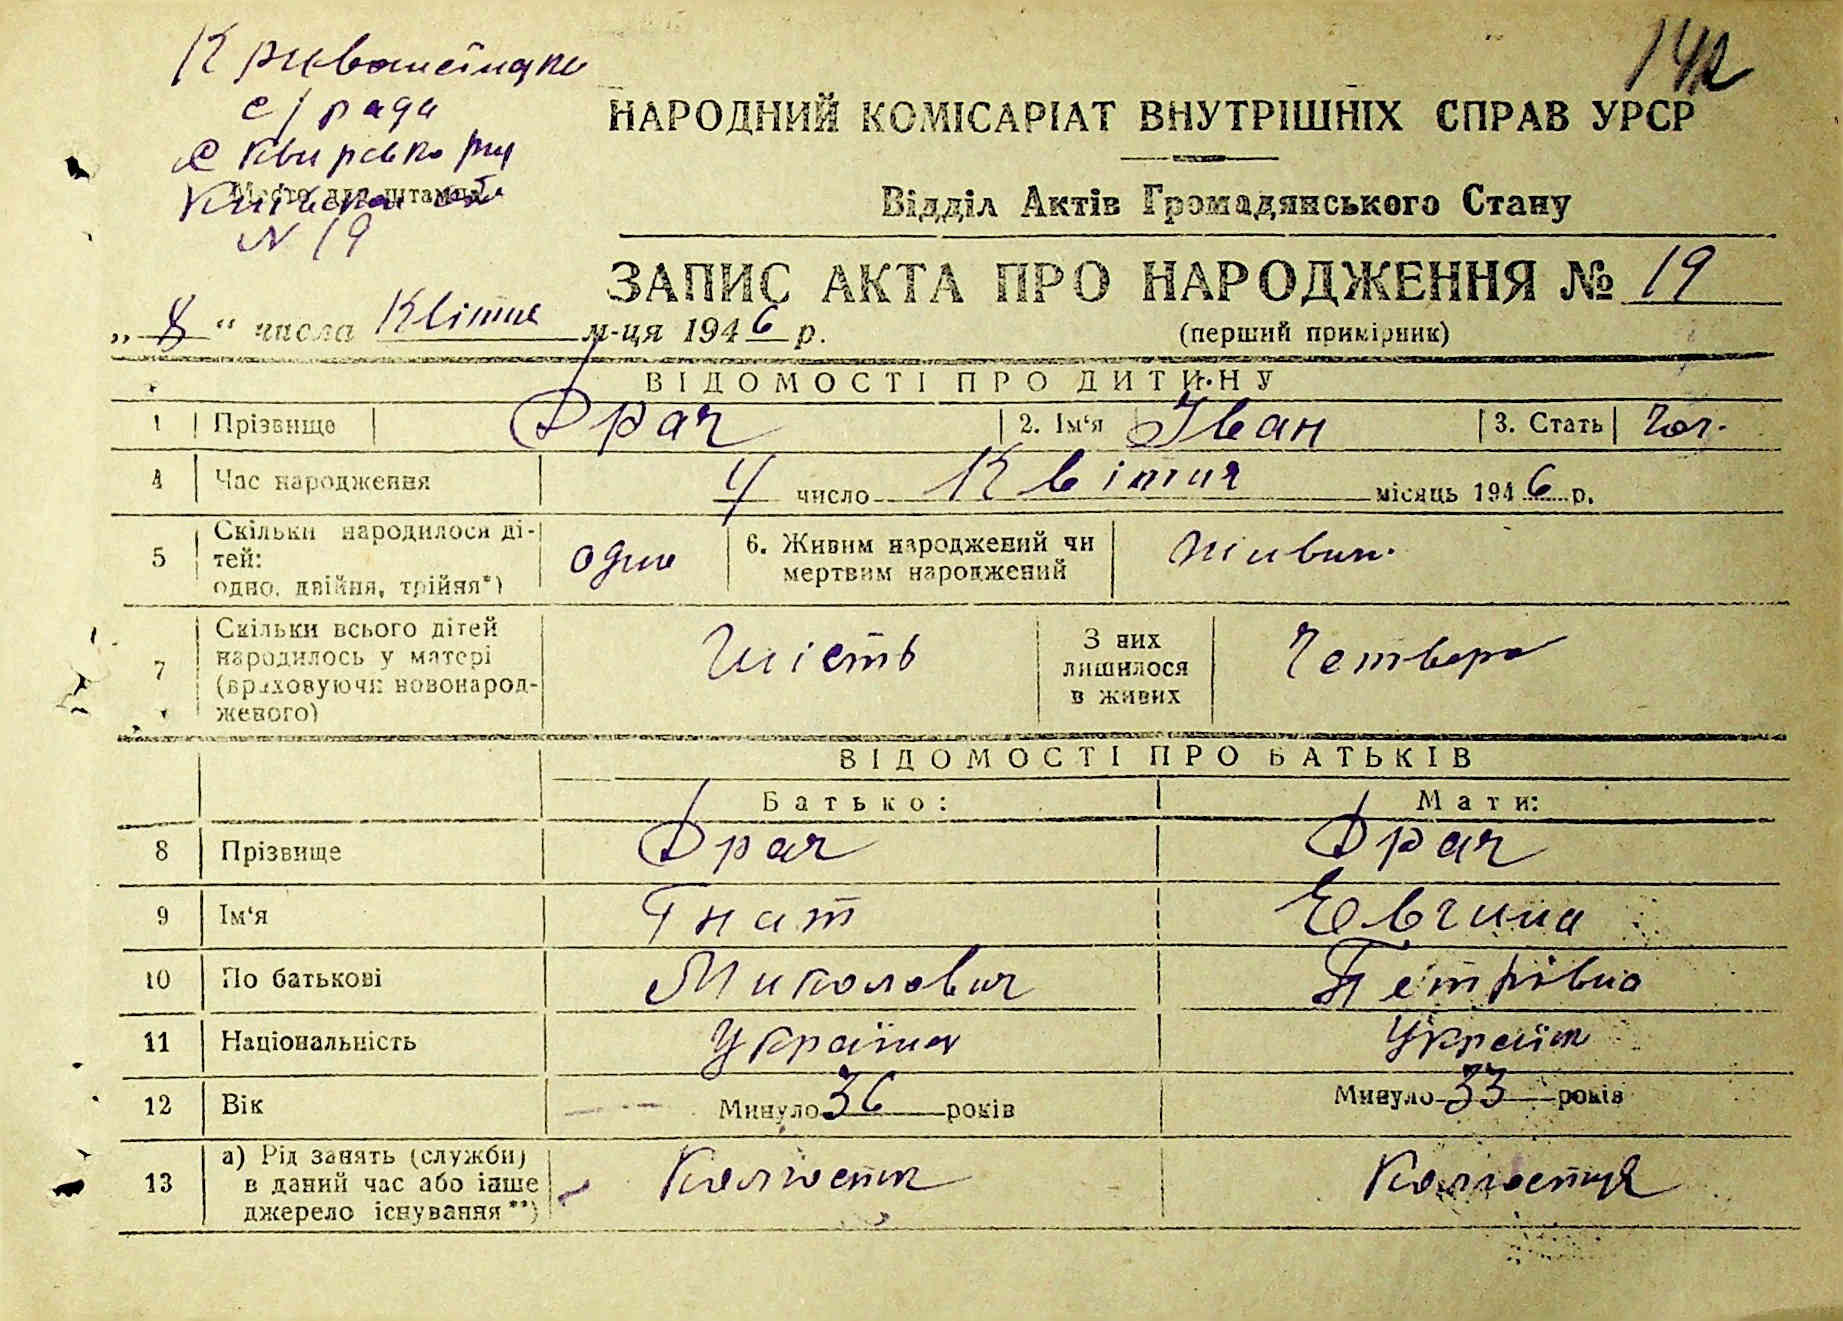 142
Кривошеїнська
с/рада
Сквирсько р-ну
Київської обл
Місто для штампа
N 19
НАРОДНИЙ КОМІСАРІАТ ВНУТРІШНІХ СПРАВ УРСР
Відділ Актів Громадянського Стану
ЗАПИС АКТА ПРО НАРОДЖЕННЯ № 19
(перший примірник)
„ 8 “ числа Квітня м-ця 1946 р.
ВІДОМОСТІ ПРО ДИТИНУ
1 Прізвище Драч 2. Ім‘я Іван 3. Стать Чол.
4 Час народження 4 число Квітня місяць 1946 р.
5 Скільки народилося ді-
тей:
одно, двійня, трійня*) одне 6. Живим народжений чи
мертвим народжений живим.
7 Скільки всього дітей
народилось у матері
(враховуючи новонарод-
женого) шість З них
лишилося
в живих Четверо
ВІДОМОСТІ ПРО БАТЬКІВ
Батько: Мати:
8 Прізвище Драч Драч
9 Ім‘я Гнат Евгина
10 По батькові Миколович Петрівна
11 Національність Україн Україн
12 Вік Минуло 36 років Минуло 33 років
13 а) Рід занять (служби)
в даний час або інше
джерело існування**) Колгоспн Колгоспця